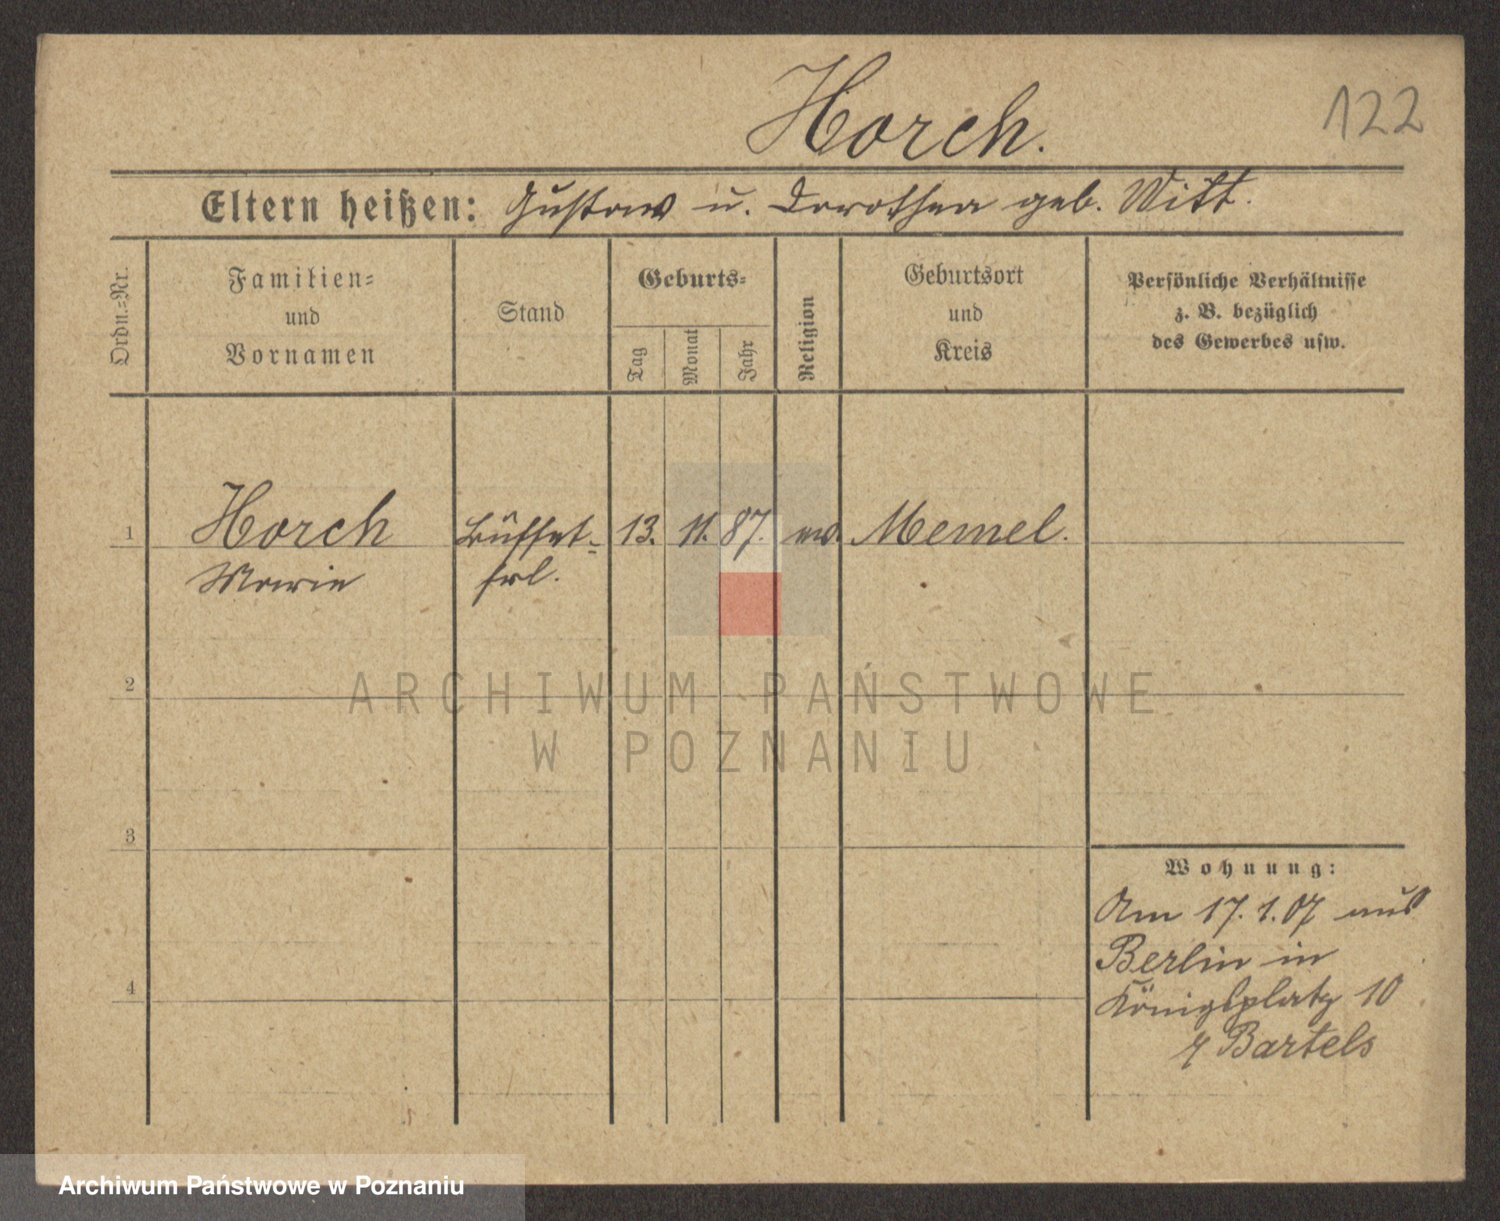 Horch.
122
Eltern heißen: Gustav u. Dorothea geb. Witt.
Ordn.-Nr.
Familien-
und
Vornamen
Stand
Geburts-
Tag
Monat
Jahr
Religion
Geburtsort
und
Kreis
Persönliche Verhältnisse
z. B. bezüglich
des Gewerbes usw.
1
Horch
Marie
Büffet-
frl.
13.
11.
87.
ev.
Memel.
2
ARCHIWUM PAŃSTWOWE
W POZNANIU
3
4
Wohnung:
Am 17.1.07 aus
Berlin in
Königsplatz 10
Bartels
Archiwum Państwowe w Poznaniu